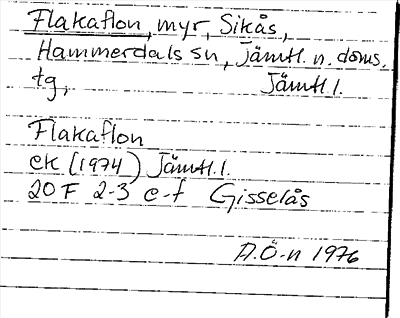 Flakaflon, myr, Sikås,
Hammerdals sn, Jämtl. n. doms.
tg, Jämtl.
Flakaflon
ek (1974) Jämtl.
20 F 2-3 e-f Gisselås
A.Ö-n 1976